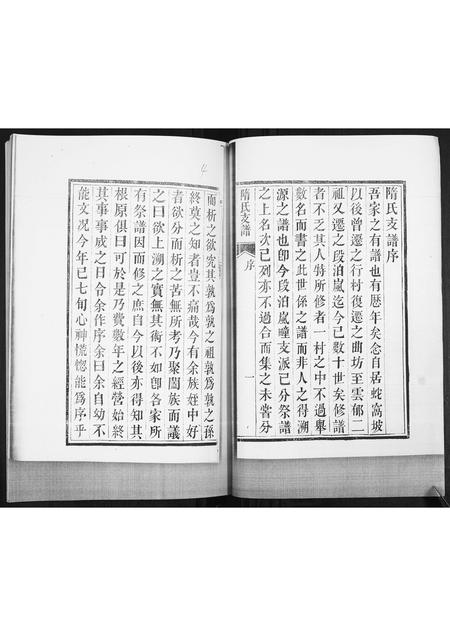 隋氏支譜序
吾家之有譜也有歷年矣念自居蛇窩坡
以後曾遷之行村復遷之曲坊至雲郁二
祖又遷之段泊嵐迄今已數十世矣修譜
者不乏其人特所修者一村之中不過舉
數名而書之此世係之譜而非人之得溯
源之譜也卽今段泊嵐疃支派已分祭譜
之上名次已列亦不過合而集之未嘗分
隋氏支譜 序 一
而析之欲究其孰爲孰之祖孰爲孰之孫
終莫之知者豈不痛哉今有余族姪中好
者欲分而析之苦無所考乃聚闔族而議
之曰欲上溯之實無其術不如卽各家所
有祭譜因而修之庶自今以後亦得知其
根原俱曰可於是乃費數年之經營始終
其事事成之日令余作序余曰余自幼不
能文况今年已七旬心神慌惚能爲序乎
4